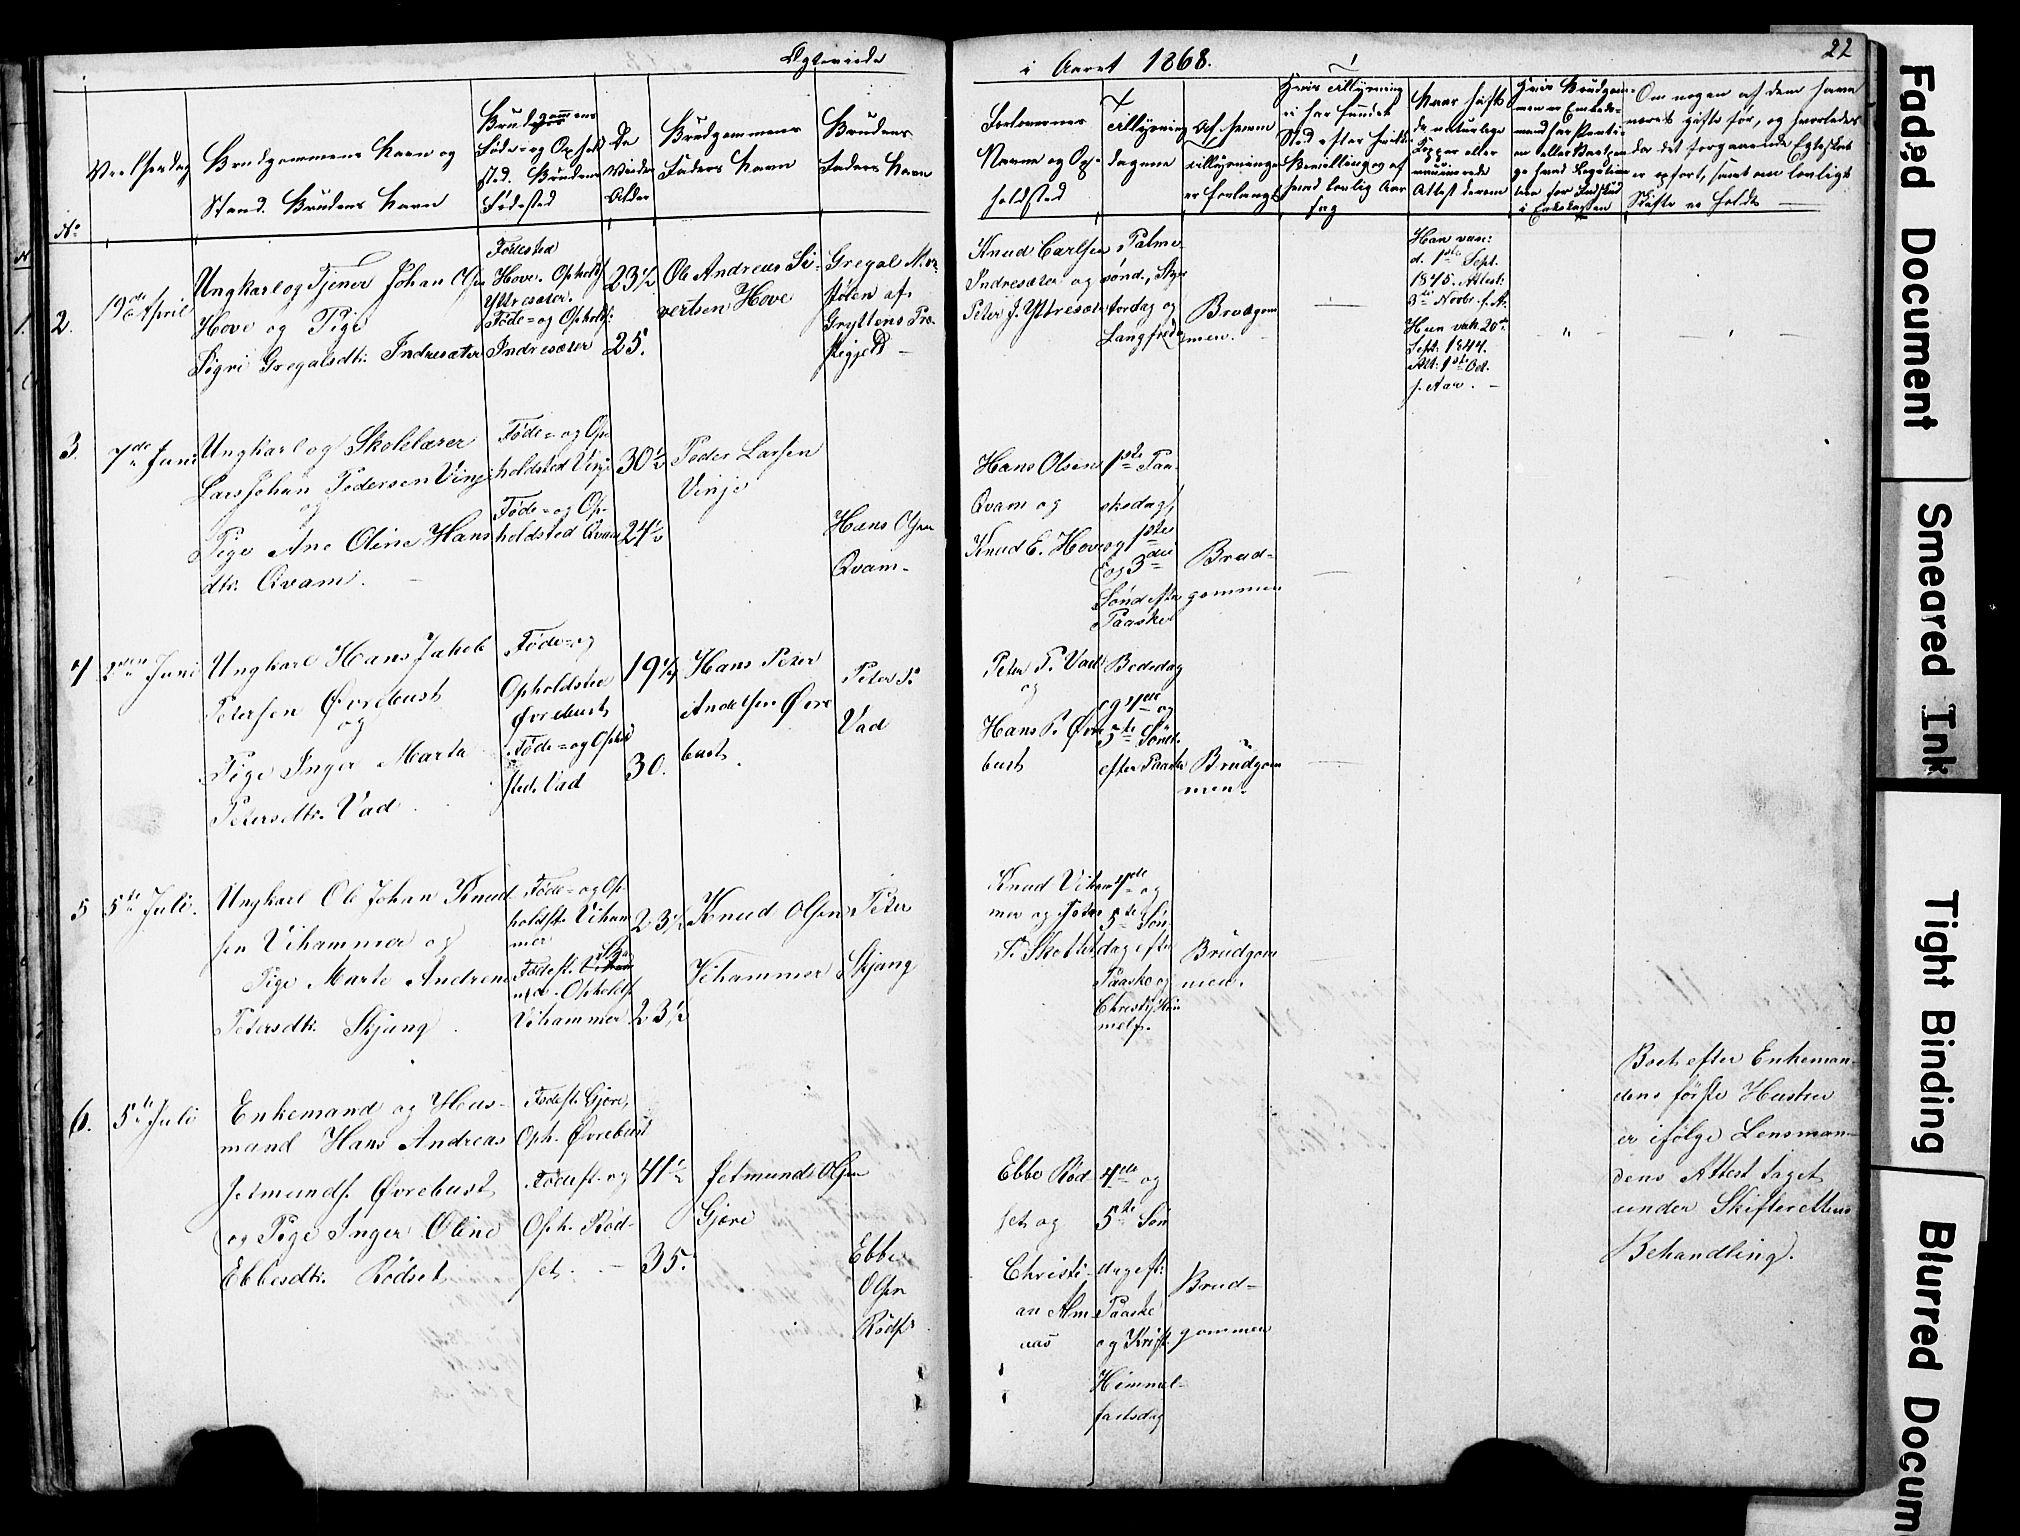 Ægteviede
i Aaret 1868.
22
No
Vielsesdag
Brudgommens Navn og
Stand. Brudens Navn
Brudgommens
Føde- og Ophold
sted. Brudens
Fødested
De
Viedes
Alder
Brudgommens
Faders Navn
Brudens
Faders Navn
Forlovernes
Navne og Op-
holdsted
Tillysnings
dagene
Af hvem
tillysningen
er forlangt
Hvis Tillysning
ei har fundet
Sted efter hvilken
Bevilling og af
hvad lovlig Aar
sag
Naar havt
de naturlige
Kopper eller
vaccinerede
Attest derom
Om nogen af dem have
været gifte før, og hvorledes
da det foregaaende Egteskab
er ophørt, samt om lovligt
Skifte er holdt
2.
19de April
Ungkarl og Tjener Johan Olsen
Hove og Pige
Sigri Gregalsdtr. Indresæter
Fødested
Hove. Opholdsst.
Yttresæter.
Føde- og Opholdst:
Indresæter
23½
25.
Ole Andreas Si-
vertsen Hove
Gregal N.
støten af
Gryttens Præ-
stegjeld
Knud Carlsen
Indresæter og
Peter J. Yttresæter
Palme
sønd., Skjær
torsdag og
Langfredag
Brudgom
men.
Han vac:
d. 1ste Sept.
1845. Attest:
3de Novbr. s. A.
Hun vak. 20de
Sept. 1844.
Att: 1ste Oct.
s. Aar.
3.
7de Juni
Ungkarl og Skolelærer
Lars Johan Pedersen Vinje
og
Pige Ane Oline Hans
dtr. Qvam.
Føde- og Op-
holdsted Vinje
Føde- og Op-
holdsted Qvam
30½
24½
Peder Larsen
Vinje
Hans Olsen
Qvam.
Hans Olsen
Qvam og
Knud E. Hove
1ste Paa-
skedag,
og 1ste
og 3die
Sønd. efter
Paaske
Brud-
gommen
4
2den Juni
Ungkarl Hans Jakob
Petersen Øvrebust
og
Pige Inger Marta
Petersdtr. Vad
Føde- og
Opholdsted
Øvrebust
Føde- og Ophold
sted Vad
19¼
30.
Hans Peter
Andersen Øvre
bust.
Peter P.
Vad
Peter P. Vad
og
Hans P. Øvre
bust
Bededag
og 4de og
5te Sønd.
efter Paaske
Brudgom
men.
5
5te Juli.
Ungkarl Ole Johan Knud
sen Vihammer og
Pige Marte Andrine
Petersdtr. Skjang
Føde- og Op-
holdsst. Viham
mer
Fødest.
Opholdsst.
Vihammer
23½
23½
Knud Olsen
Vihammer
Peter
Skjang
Knud Viham
mer og Peter
P. Skottet
4de og
5te Søn
dag efter
Paaske og
Christi Him
melf.
Brudgom
men.
6.
5te Juli
Enkemand og Huus-
mand Hans Andreas
Jetmunds. Øvrebust
og Pige Inger Oline
Ebbesdtr. Rødset
Fødest. Gjøre,
Oph. Øvrebust
Fødest. og
Oph. Rød-
set.
41½
35.
Jetmund Olsen
Gjøre
Ebbe
Olsen
Rødset
Ebbe Rød
set og
Christi-
an Alm
aas
4de og
5te Søn
dag eft:
Paaske
og Krist.
Himmel-
fartsdag
Brud-
gommen
Boet efter Enkeman-
dens første Hustru
er ifølge Lensman-
dens Attest taget
under Skifterettens
Behandling.
Faded Document
Smeared Ink
Tight Binding
Blurred Docum